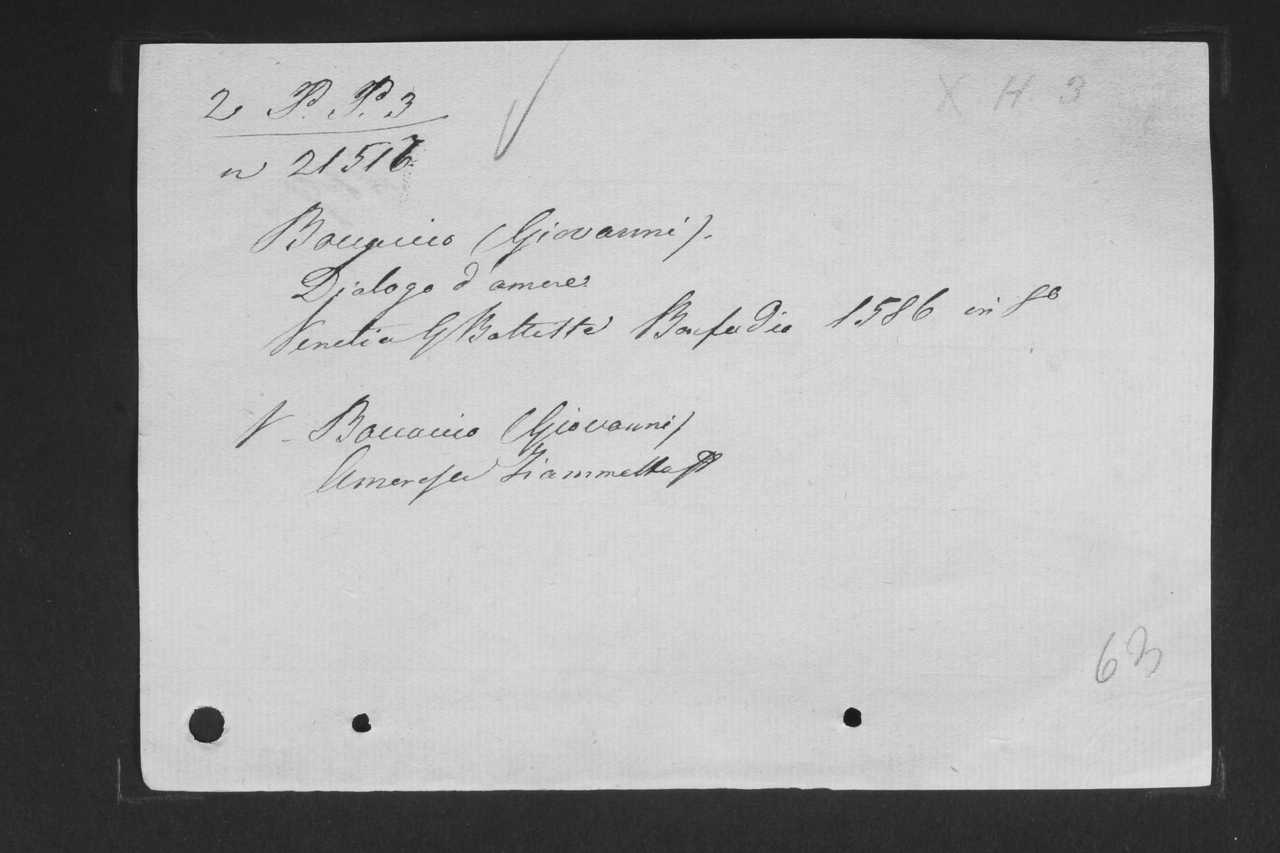 2 P. P. 3
X H 3
n 21516
Boccaccio (Giovanni).
Dialogo d'amore
Venetia G Battista Bonfadio 1586 in 8º
V. Boccaccio (Giovanni)
Amorosa Fiammetta
63